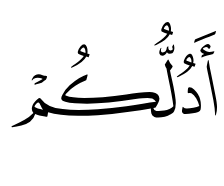 أَدُلُّكُمْ